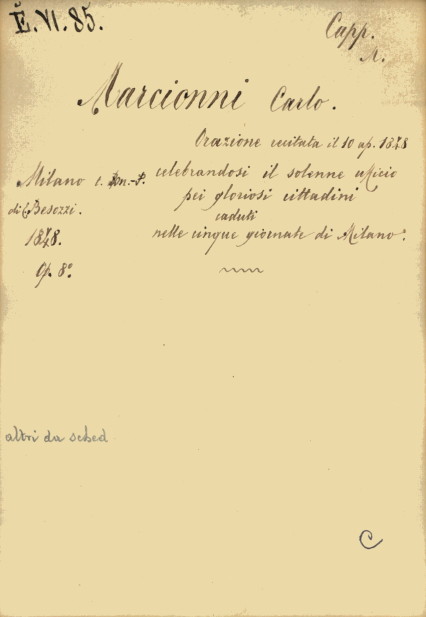 E. VI. 85.
Capp.
1.
Marcionni Carlo.
Orazione recitata il 10 ap. 1848
celebrandosi il solenne uficio
pei gloriosi cittadini
caduti
nelle cinque giornate di Milano.
Milano
di Besozzi.
1848.
Op. 8º
altri da sched
C